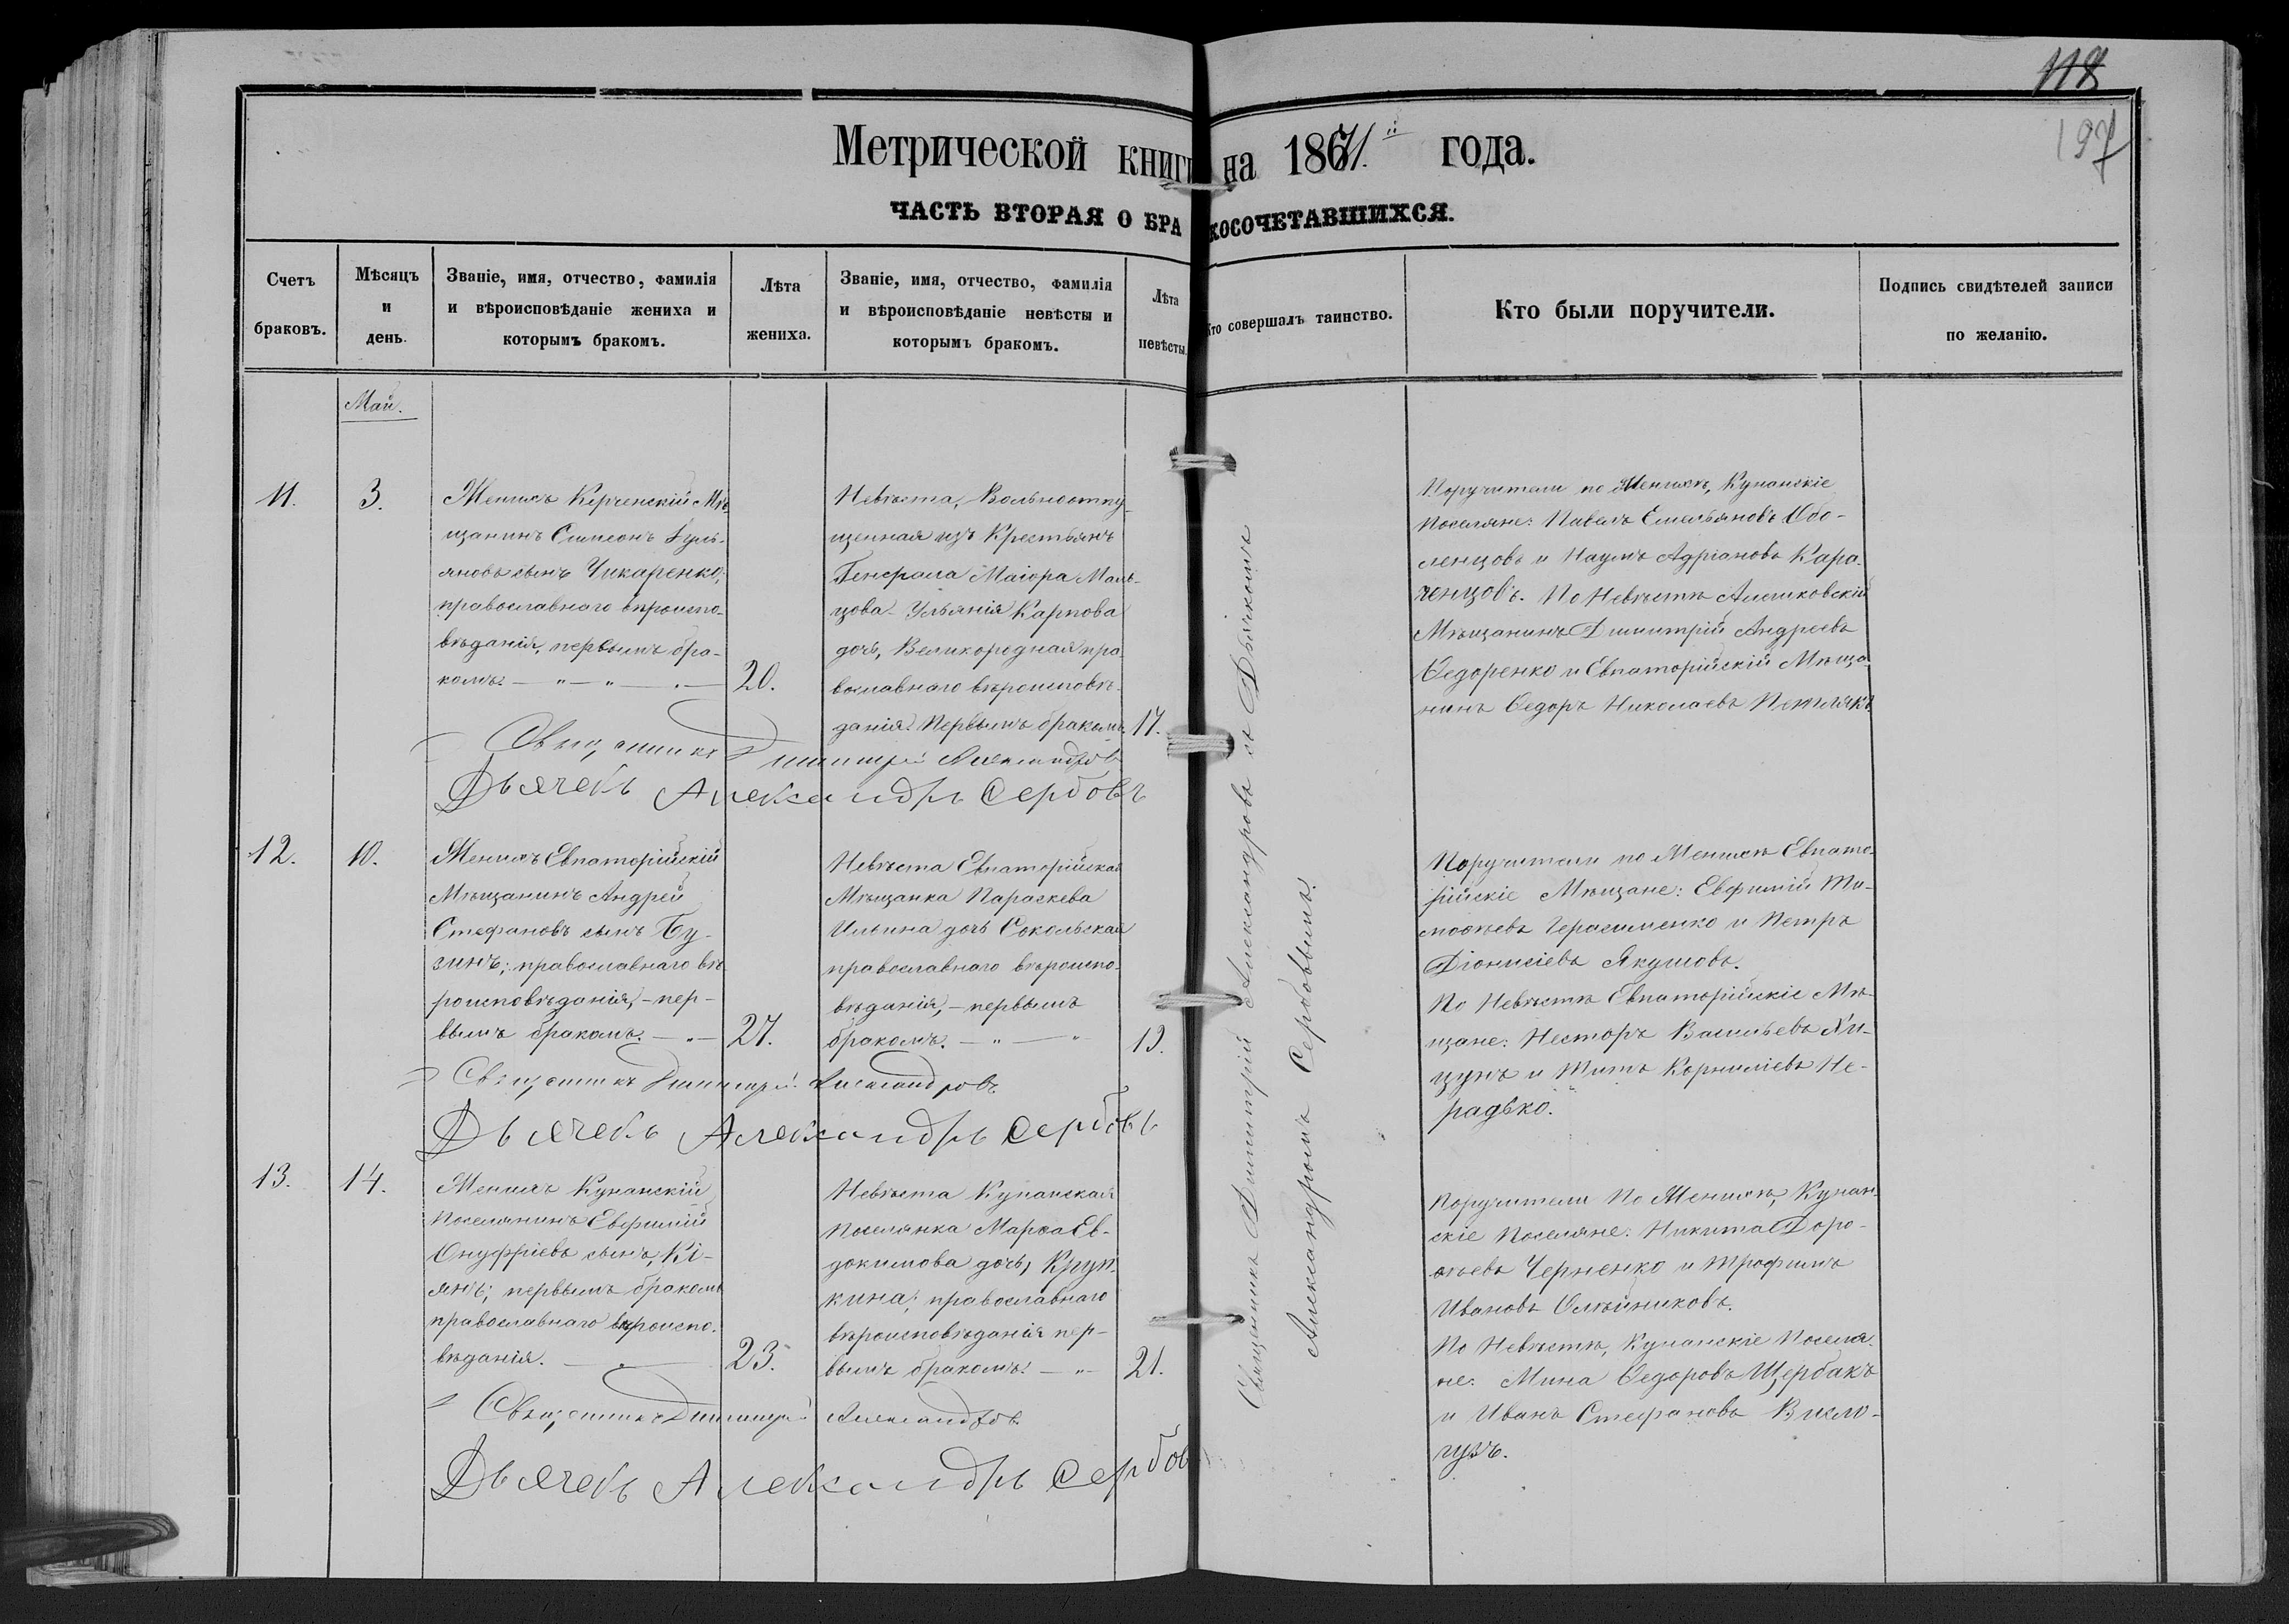 118
197
Метрической книги на 1871.й года.
ЧАСТЬ ВТОРАЯ О БРАКОСОЧЕТАВШИХСЯ.
Счетъ браковъ.
Мѣсяцъ и день.
Званіе, имя, отчество, фамилія
и вѣроисповѣданіе жениха и
которымъ бракомъ.
Лѣта
жениха.
Званіе, имя, отчество, фамилія
и вѣроисповѣданіе невѣсты и
которымъ бракомъ.
Лѣта
невѣсты.
Кто совершалъ таинство.
Кто были поручители.
Подпись свидѣтелей записи
по желанію.
Май.
11.
3.
Женихъ Керченскій Мѣ-
щанинъ Симеонъ
яновъ сынъ Чикаренко,
православнаго вѣроиспо-
вѣданія, первымъ бра-
комъ. — „ — „ — . —
20.
Невѣста, Вольноотпу-
щенная изъ Крестьянъ
Генерала Маіора Маль-
цова Ульянія Карпова
дочь, Великородная пра-
вославнаго вѣроисповѣ-
данія. Первымъ бракомъ.
17.
Священникъ Димитрій Александровъ
Дьячекъ Александръ Сербовъ
Поручители по Женихѣ, Кунанскіе
поселяне: Павелъ Емельяновъ Обо-
ленцовъ и Наумъ Адріановъ Кара-
ченцовъ. По Невѣстѣ Алешковскій
Мѣщанинъ Димитрій Андреевъ
Ѳедоренко и Евпаторійскій Мѣща-
нинъ Ѳедоръ Николаевъ Петлякъ
12.
10.
Женихъ Евпаторійскій
Мѣщанинъ Андрей
Стефановъ сынъ Бу-
зинъ; православнаго вѣ-
роисповѣданія, - пер-
вымъ бракомъ. — „ —
27.
Невѣста Евпаторійская
Мѣщанка Параскева
Ильина дочь Сокольская
православнаго вѣроиспо-
вѣданія, - первымъ
бракомъ. — „ — „
19.
Священникъ Димитрій Александровъ
Дьячекъ Александръ Сербовъ
Поручители по Женихѣ Евпато-
рійскіе Мѣщане: Евфимій Ти-
моѳеевъ Герасименко и Петръ
Діонисіевъ Якушовъ.
По Невѣстѣ Евпаторійскіе Мѣ-
щане: Несторъ Васильевъ Ки-
цунъ и Титъ Корниліевъ Не-
радько.
13.
14.
Женихъ Кунанскій
Поселянинъ Евфимій
Онуфріевъ сынъ, Кі-
янъ; первымъ бракомъ
православнаго вѣроиспо-
вѣданія. — „ —
23.
Невѣста Кунанская
Поселянка Марѳа Ев-
докимова дочь, Круп-
кина; православнаго
вѣроисповѣданія пер-
вымъ бракомъ. — „ —
21.
Священникъ Димитрій Александровъ
Дьячекъ Александръ Сербов
Поручители по Женихѣ, Кунан-
скіе Поселяне: Никита Доро-
ѳеевъ Черненко и Трофимъ
Ивановъ Олейниковъ.
По Невѣстѣ, Кунанскіе Поселя-
не: Мина Ѳедоровъ Щербакъ
и Иванъ Стефановъ
Священникъ Димитрій Александровъ съ Дьячкомъ
Александромъ Сербовымъ.